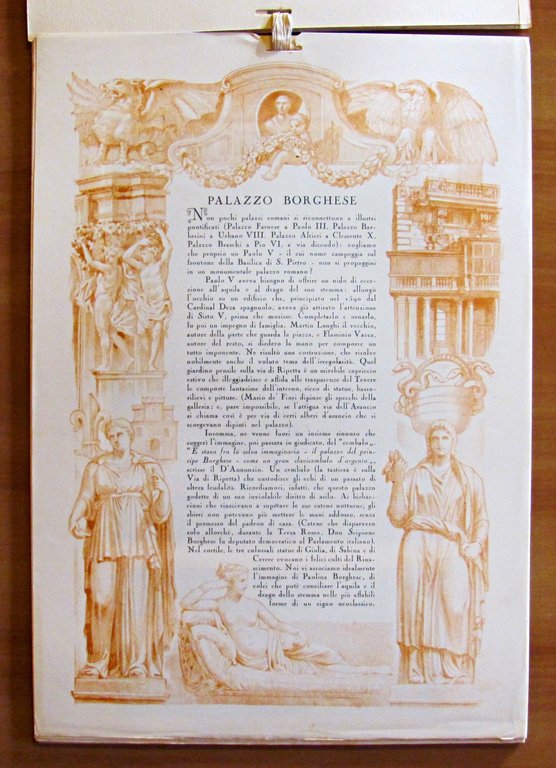 PALAZZO BORGHESE
Non pochi palazzi romani si riconnettono a illustri
pontificati (Palazzo Farnese a Paolo III, Palazzo Bar-
berini a Urbano VIII, Palazzo Altieri a Clemente X,
Palazzo Braschi a Pio VI, e via dicendo): vogliamo
che proprio un Paolo V - il cui nome campeggia sul
frontone della Basilica di S. Pietro - non si propaggini
in un monumentale palazzo romano?
Paolo V aveva bisogno di offrire un nido di ecce-
zione all'aquila e al drago del suo stemma: allungò
l'occhio su un edificio che, principiato nel 1590 dal
Cardinal Deza spagnuolo, aveva già attirato l'attenzione
di Sisto V, prima che morisse. Completarlo e ornarlo,
fu poi un impegno di famiglia. Martin Longhi il vecchio,
autore della parte che guarda la piazza, e Flaminio Vacca,
autore del resto, si diedero la mano per comporre un
tutto imponente. Ne risultò una costruzione, che risolve
nobilmente anche il voluto tema dell'irregolarità. Quel
giardino pensile sulla via di Ripetta è un mirabile capriccio
estivo che illeggiadrisce e affida alle trasparenze del Tevere
le composte fantasime dell'interno, ricco di statue, basso-
rilievi e pitture. (Mario de' Fiori dipinse gli specchi della
galleria; e, pare impossibile, se l'attigua via dell'Arancio
si chiama così è per via di certi alberi d'arancio che si
scorgevano dipinti nel palazzo).
Insomma, ne venne fuori un insieme sinuoso che
suggerì l'immagine, poi passata in giudicato, del "cembalo„.
"È stano fra la selva immaginaria - il palazzo del prin-
cipe Borghese - come un gran clavicembalo d'argento„,
scrisse il D'Annunzio. Un cembalo (la tastiera è sulla
Via di Ripetta) che custodisce gli echi di un passato di
altera feudalità. Ricordiamoci, infatti, che questo palazzo
godette di un suo inviolabile diritto di asilo. Ai birbac-
cioni che riuscivano a superare le sue catene notturne, gli
sbirri non potevano più mettere le mani addosso, senza
il permesso del padron di casa. (Catene che disparvero
solo allorchè, durante la Terza Roma, Don Scipione
Borghese fu deputato democratico al Parlamento italiano).
Nel cortile, le tre colossali statue di Giulia, di Sabina e di
Cerere evocano i felici culti del Rina-
scimento. Noi vi associamo idealmente
l'immagine di Paolina Borghese, di
colei che potè conciliare l'aquila e il
drago dello stemma nelle più affabili
forme di un cigno neoclassico.